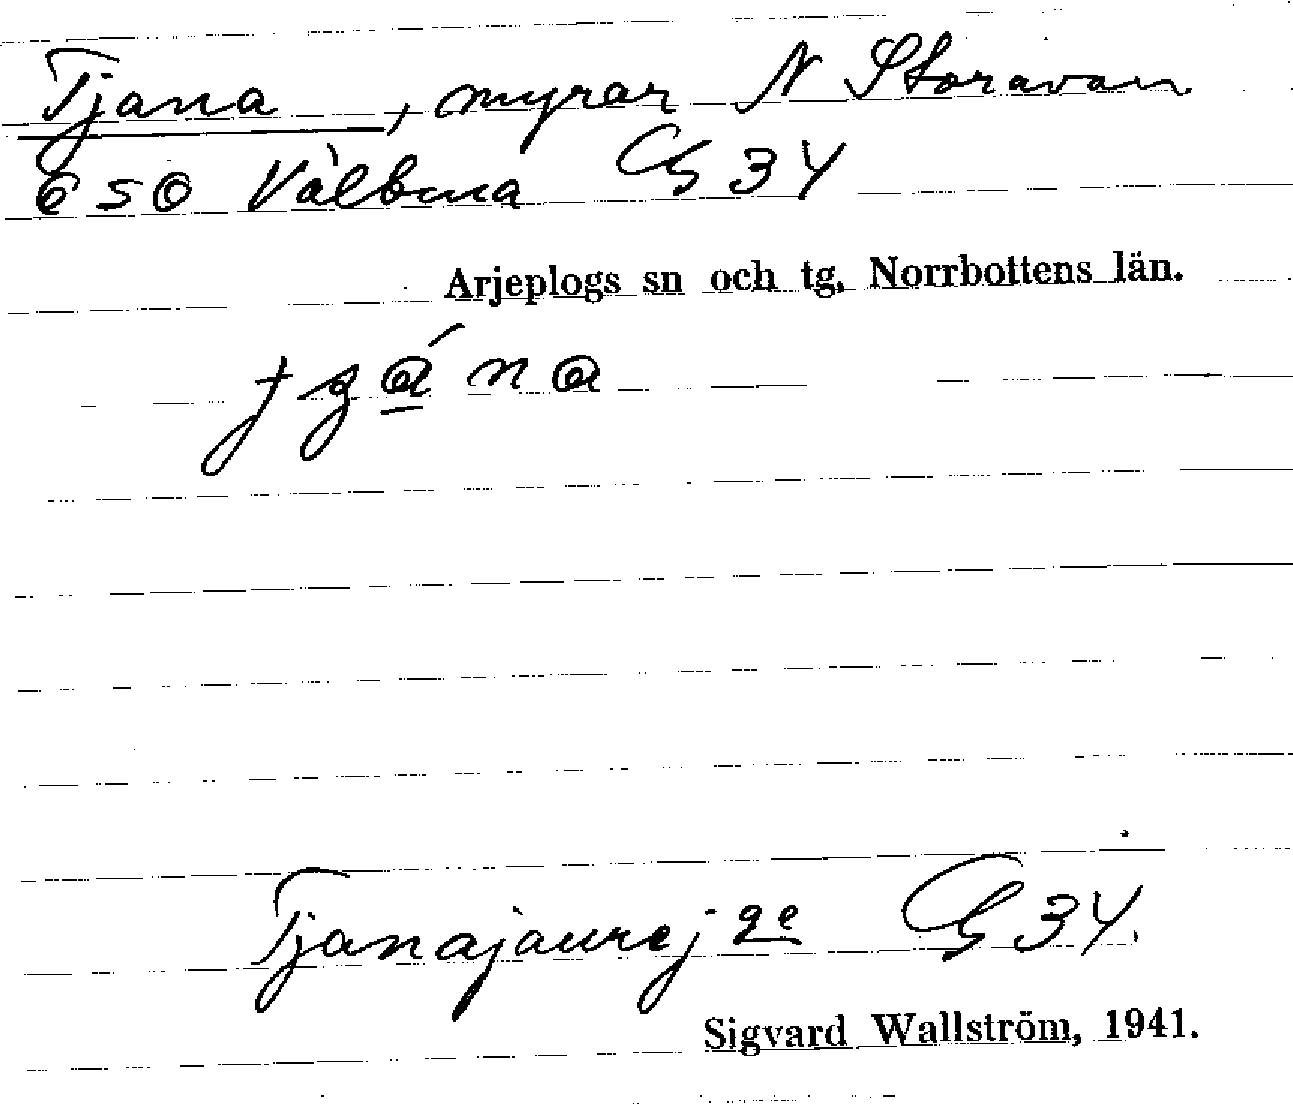 Tjana, myrar N Storavan
OSO Välbma G 34
Arjeplogs sn och tg, Norrbottens län.
Tjanajaurej qe G 34.
Sigvard Wallström, 1941.